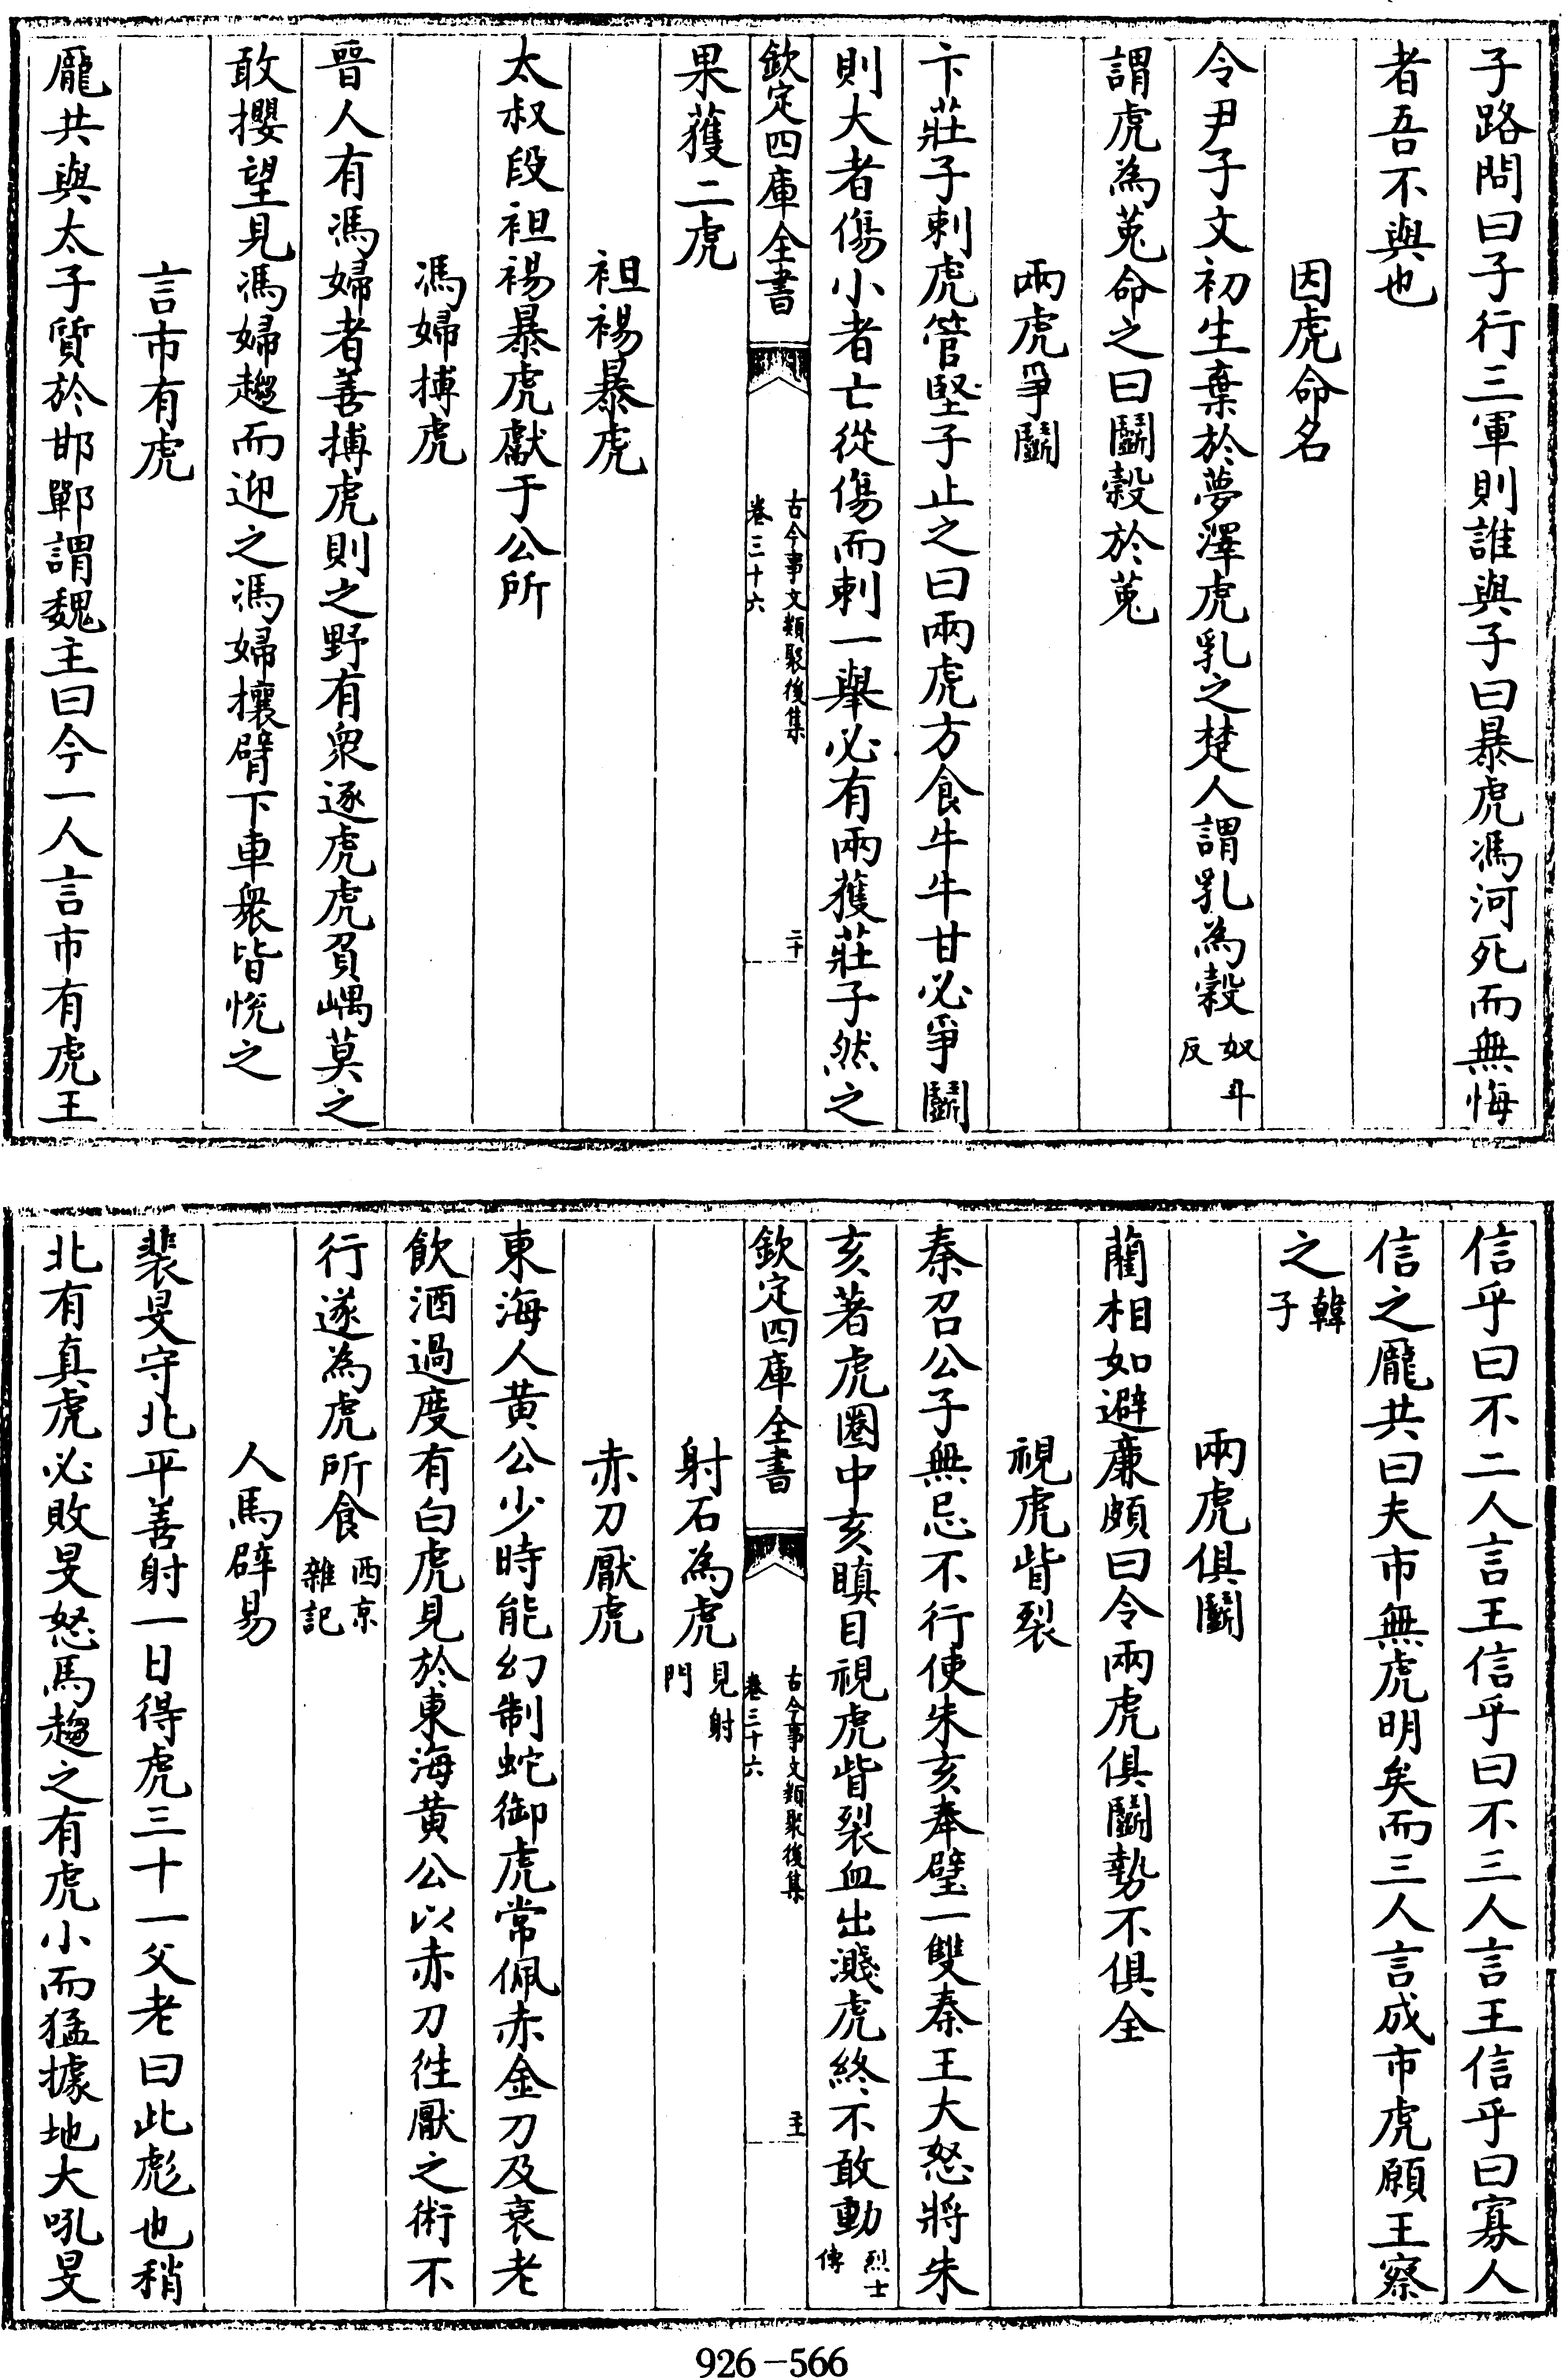 子路問曰子行三軍則誰與子曰暴虎馮河死而無悔
者吾不與也
因虎命名
令尹子文初生棄於夢澤虎乳之楚人謂乳為穀奴斗反
謂虎為菟命之曰鬭穀於菟
兩虎爭鬭
卞莊子刺虎管堅子止之曰兩虎方食牛牛甘必爭鬭
則大者傷小者亡從傷而刺一舉必有兩獲莊子然之
欽定四庫全書
古今事文類聚後集
卷三十六
二十
果獲二虎
袒裼暴虎
太叔段袒裼暴虎獻于公所
馮婦搏虎
晉人有馮婦者善搏虎則之野有衆逐虎虎負嵎莫之
敢攖望見馮婦趨而迎之馮婦攘臂下車衆皆悅之
言市有虎
龎共與太子質於邯鄲謂魏主曰今一人言市有虎王
信乎曰不二人言王信乎曰不三人言王信乎曰寡人
信之龎共曰夫市無虎明矣而三人言成市虎願王察
之韓子
兩虎俱鬭
藺相如避廉頗曰令兩虎俱鬭勢不俱全
視虎眥裂
秦召公子無忌不行使朱亥奉璧一雙秦王大怒將朱
亥著虎圈中亥瞋目視虎眥裂血出濺虎終不敢動烈士傳
欽定四庫全書
古今事文類聚後集
卷三十六
射石為虎見射門
赤刀厭虎
東海人黄公少時能幻制蛇御虎常佩赤金刀及衰老
飲酒過度有白虎見於東海黄公以赤刀徃厭之術不
行遂為虎所食西京雜記
人馬辟易
裴旻守北平善射一日得虎三十一父老曰此彪也稍
北有真虎必敗旻怒馬趨之有虎小而猛據地大吼旻
926-566